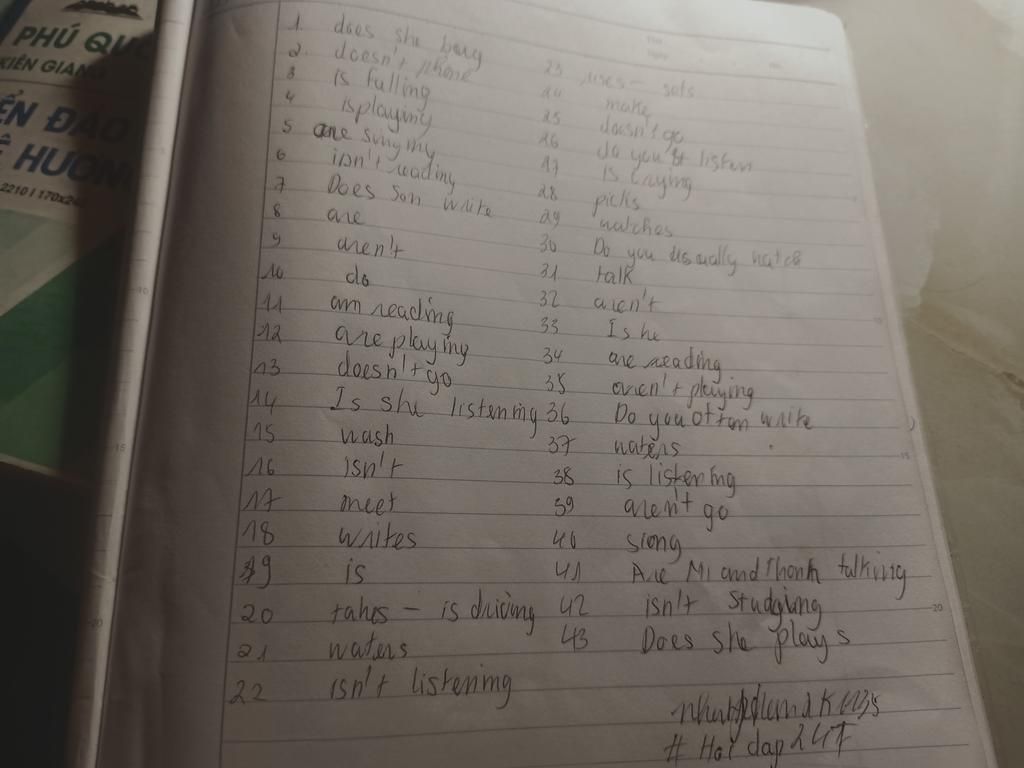 PHÚ QUỐC
KIÊN GIANG
ỂN ĐẢO
HƯƠNG
2210 I 170x240
1 does she buy
2 doesn't phone
3 is falling
4 isplaying
5 are singing
6 isn't reading
7 Does Son write
8 are
9 aren't
10 do
11 am reading
12 are playing
13 doesn't go
14 Is she listening
15 wash
16 isn't
17 meet
18 writes
19 is
20 takes – is driving
21 waters
22 isn't listening
23 rises – sets
24 make
25 doesn't go
26 do you listen
27 Is crying
28 picks
29 watches
30 Do you usually
31 talk
32 aren't
33 Is he
34 are reading
35 aren't playing
36 Do you often write
37 waters
38 is listening
39 aren't go
40
41 Are Mi and Thanh talking
42 isn't studying
43 Does she plays
# Hoi dap 247